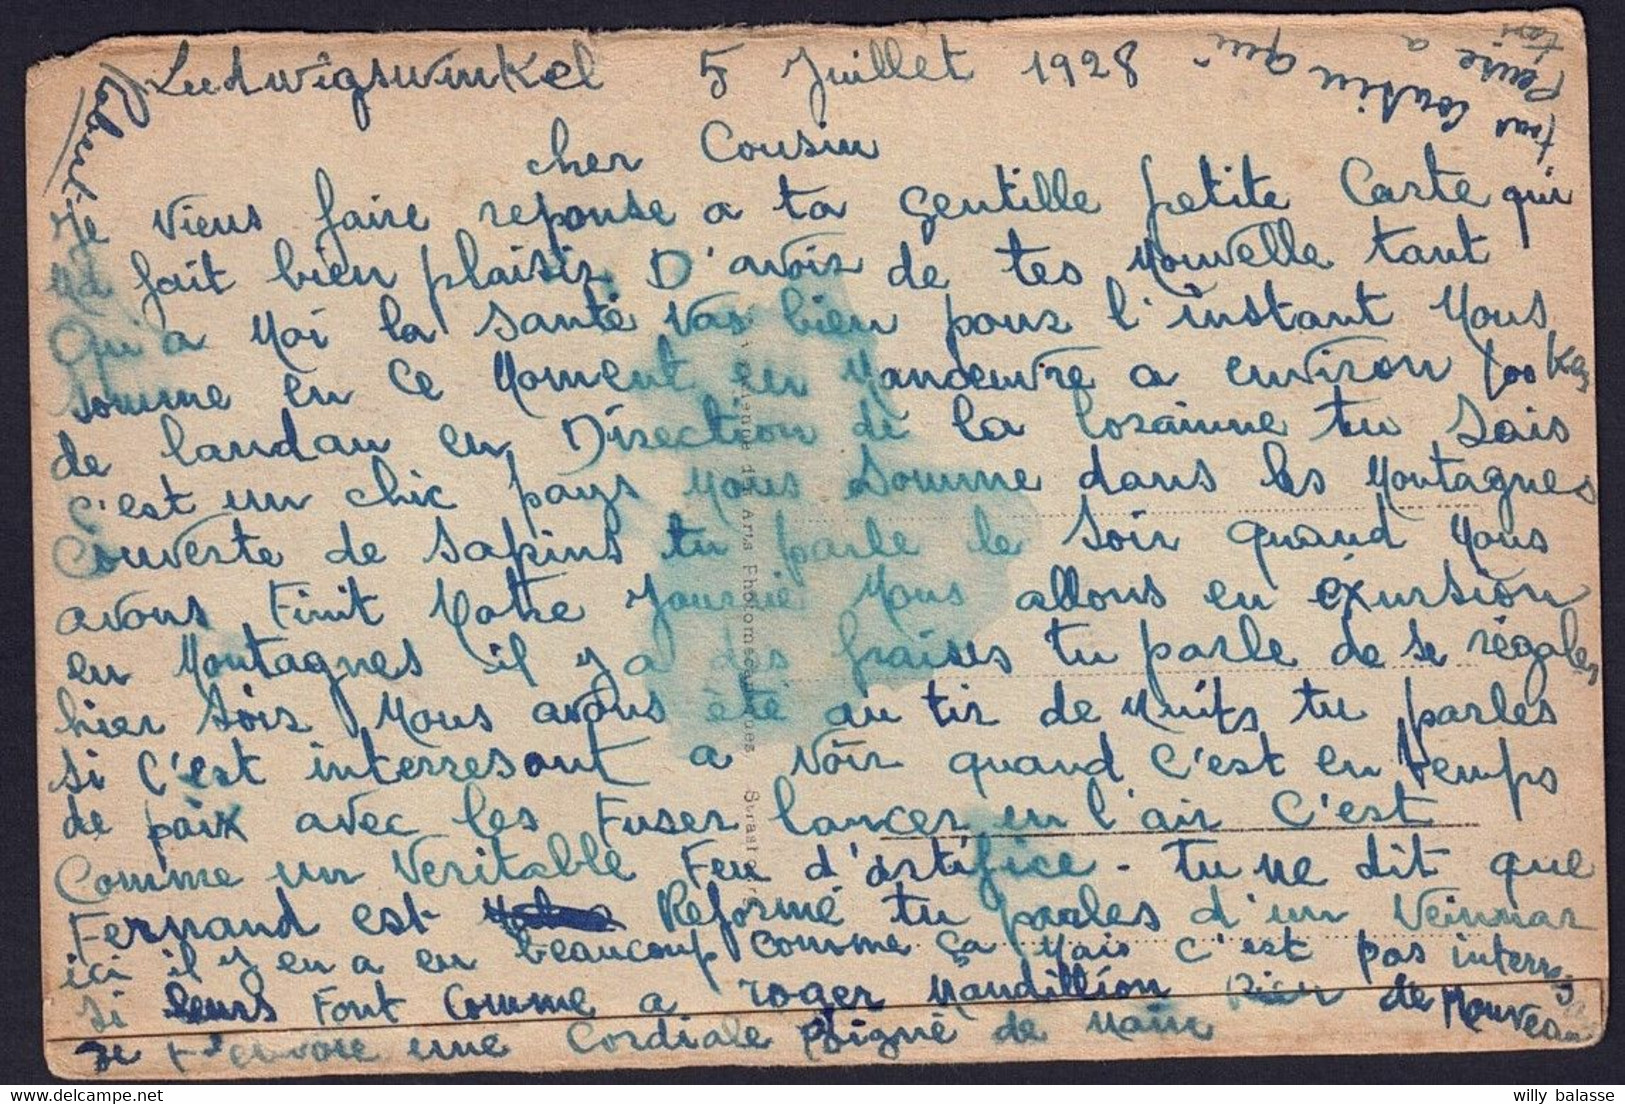 Ludwigswinkel 5 Juillet 1928
cher Cousin
Je viens faire reponse a ta gentille petite Carte qui
Md fait bien plaisir D'avoir de tes Nouvelle tant
Qu'a Moi la santé Vas bien pour l'instant Nous
somme en Ce Moment en Manoeuvre a environ 100 Km
de landau en Direction de la loraine tu Sais
C'est un chic pays Nous Somme dans les Montagnes
Couverte de sapins tu parle le Soir quand Nous
avons Finit Notre Journé Nous allons en exursion
en Montagnes il y a des fraises tu parle de se régaler
hier Soir Nous avons été au tir de Nuits tu parles
si C'est interresant a Voir quand C'est en temps
de paix avec les Fuser lancer en l'air C'est
Comme un Veritable Feu d'artifice - tu me dit que
Fernand est Reformé tu parles d'un Veinmar
ici il y en a en beaucoup Comme ça Mais C'est pas
si leurs Font Comme a roger Mandillion Rien de Nouveau
Je t'envoie une Cordiale Poigné de Main
ton Cousin qui
Pense a
toi
Robert
Avenue des Arts Photomécaniques, Strasbourg
willy balasse